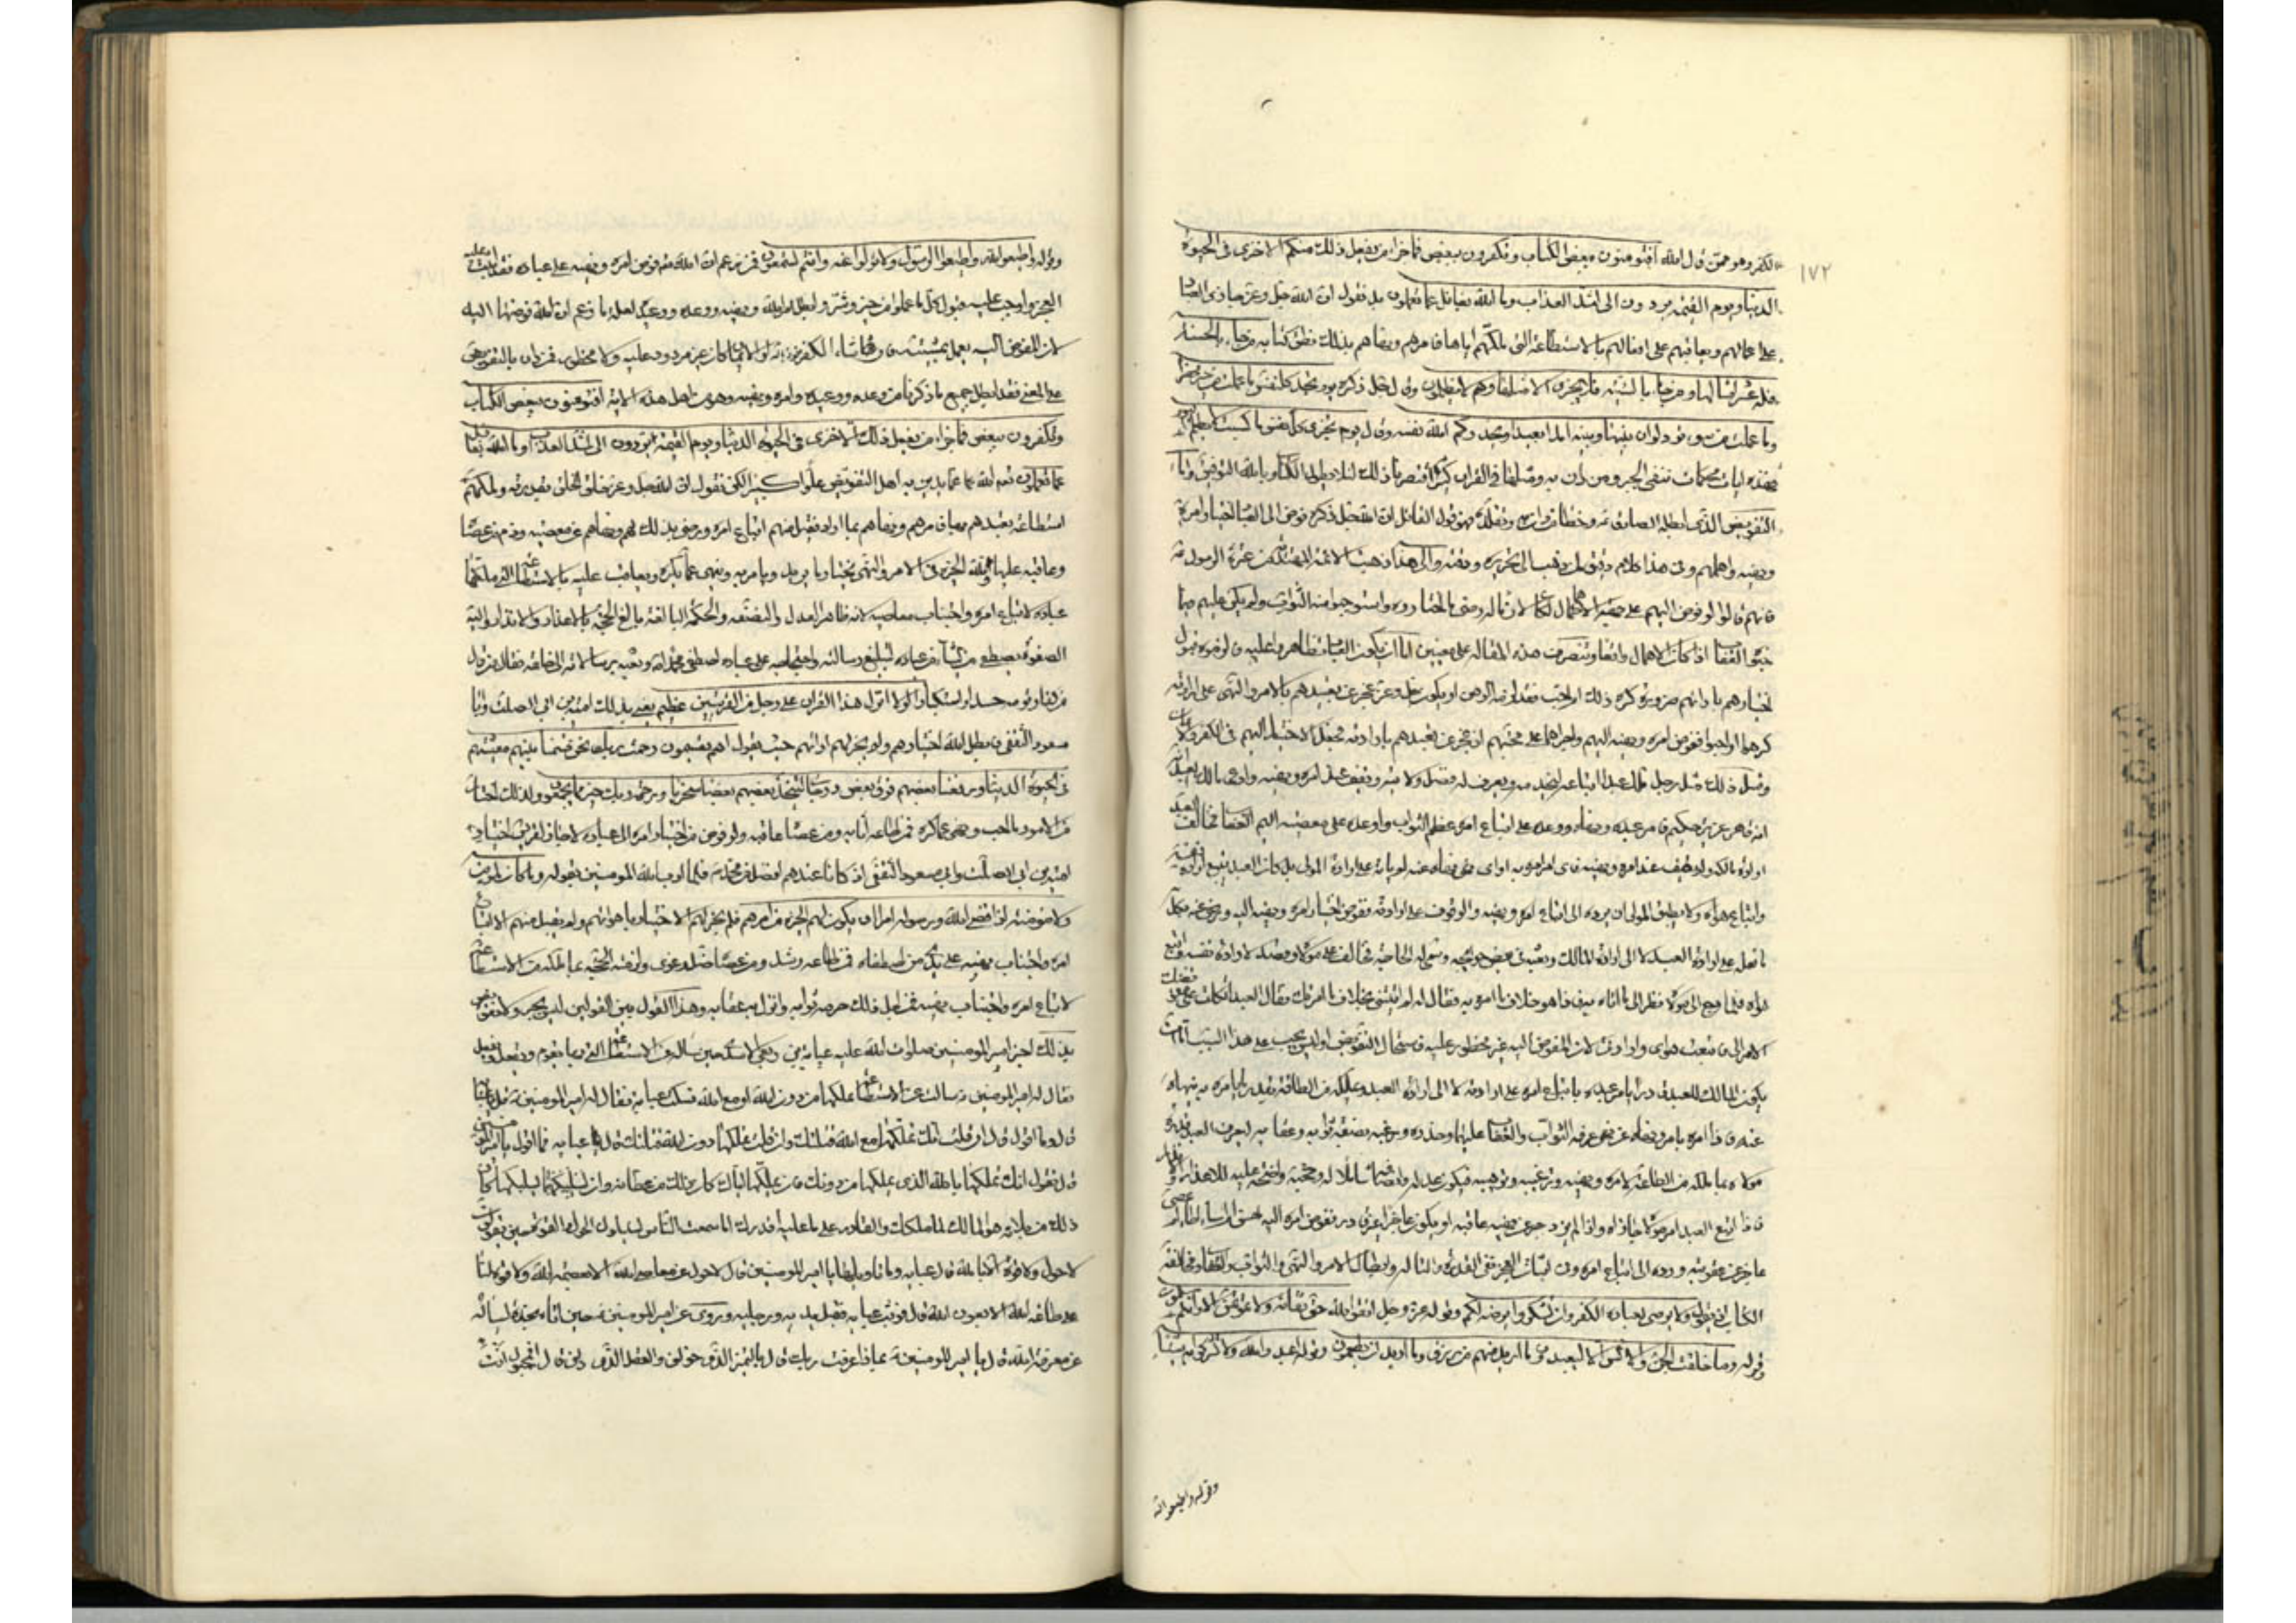 ١٧٢
الكفر وهو ممن قال الله افتؤمنون ببعض الكتاب وتكفرون ببعض فما جزاء من يفعل ذلك منكم الا خزى فى الحيوة
الدنيا ويوم القيمة يردون الى اشد العذاب وما الله بغافل عما تعملون بل نقول ان الله جل وعز يجازى العباد
على اعمالهم ويعاقبهم على افعالهم بالاستطاعة التى ملكهم اياها فامرهم ونهاهم بذلك ونطق كتابه من جاء بالحسنة
فله عشر امثالها ومن جاء بالسيئة فلا يجزى الا مثلها وهم لا يظلمون وقال جل ذكره يوم تجد كل نفس ما عملت من خير محضرا
وما عملت من سوء تود لو ان بينها وبينه امدا بعيدا ويحذركم الله نفسه وقال اليوم تجزى كل نفس بما كسبت لا ظلم اليوم
فهذه ايات محكمات تنفى الجبر ومن دان به ومثلها فى القران كثير اقتصرنا ذلك لئلا يطول الكتاب وبالله التوفيق واما
التفويض الذى ابطله الصادق وخطأ من دان به وتقلده فهو قول القائل ان الله جل ذكره فوض الى العباد اختيار امره
ونهيه واهملهم وفى هذا كلام دقيق لمن يذهب الى تحريره ودقته والى هذا ذهبت الائمة المهتدية من عترة الرسول
فانهم قالوا لو فوض اليهم على جهة الاهمال لكان لازما له رضى ما اختاروه واستوجبوا منه الثواب ولم يكن عليهم فيما
جنوا العقاب اذا كان الاهمال واقعا وتنصرف هذه المقالة على معنيين اما ان يكون العباد تظاهروا عليه فالزموه قبول
اختيارهم بارائهم ضرورة كره ذلك ام احب فقد لزمه الوهن او يكون جل وعز عجز عن تعبدهم بالامر والنهى على ارادته
كرهوا او احبوا ففوض امره ونهيه اليهم واجراهما على محبتهم اذ عجز عن تعبدهم بارادته فجعل الاختيار اليهم فى الكفر والايمان
ومثل ذلك مثل رجل ملك عبدا ابتاعه ليخدمه ويعرف له فضل ولايته ويقف عند امره ونهيه وادعى مالك العبد
انه قاهر عزيز حكيم فامر عبده ونهاه ووعده على اتباع امره عظيم الثواب واوعده على معصيته اليم العقاب فخالف العبد
ارادة مالكه ولم يقف عند امره ونهيه فاى امر امره به او اى نهى نهاه عنه لم يأته على ارادة المولى بل كان العبد يتبع ارادة نفسه
واتباع هواه ولا يطيق المولى ان يرده الى اتباع امره ونهيه والوقوف على ارادته ففوض اختيار امره ونهيه اليه ورضى منه بكل
ما فعله على ارادة العبد لا الى ارادة المالك وبعثه فى بعض حوايجه وسمى له الحاجة فخالف على مولاه وقصد لارادة نفسه واتبع
هواه فلما رجع الى مولاه نظر الى ما اتاه به فاذا هو خلاف ما امره به فقال له لم اتيتنى بخلاف ما امرتك فقال العبد اتكلت على تفويضك
الامر الى فاتبعت هواى وارادتى لان المفوض اليه غير محظور عليه فاستحال التفويض اوليس يجب على هذا السبب اما ان
يكون المالك للعبد قادرا يامر عبده باتباع امره على ارادته لا الى ارادة العبد ويملكه من الطاقة بقدر ما يامره به وينهاه
عنه فاذا امره بامر ونهاه عن نهى عرفه الثواب والعقاب عليهما وحذره ورغبه بصفة ثوابه وعقابه ليعرف العبد قدرة
مولاه بما ملكه من الطاقة لامره ونهيه وترغيبه وترهيبه فيكون عدله وانصافه شاملا له وحجته واضحة عليه للاعذار والانذار
فاذا اتبع العبد امر مولاه جازاه واذا لم يزدجر عن نهيه عاقبه او يكون عاجزا غير قادر ففوض امره اليه احسن ام اساء اطاع ام عصى
عاجز عن عقوبته ورده الى اتباع امره وفى اثبات العجز نفى القدرة والتاله وابطال الامر والنهى والثواب والعقاب ومخالفة
الكتاب اذ يقول ولا يرضى لعباده الكفر وان تشكروا يرضه لكم وقوله عز وجل اتقوا الله حق تقاته ولا تموتن الا وانتم مسلمون
وقوله وما خلقت الجن والانس الا ليعبدون ما اريد منهم من رزق وما اريد ان يطعمون وقوله اعبدوا الله ولا تشركوا به شيئا
وقوله واطيعوا الله
وقوله واطيعوا الله واطيعوا الرسول ولا تولوا عنه وانتم تسمعون فمن زعم ان الله فوض امره ونهيه على عباده فقد اثبت عليه
العجز واوجب عليه قبول كل ما عملوا من خير وشر وابطل امر الله ونهيه ووعده ووعيده لعلة ما زعم ان الله فوضها اليه
لان المفوض اليه يعمل بمشيته فان شاء الكفر او الايمان كان غير مردود عليه ولا محظور فمن دان بالتفويض
على هذا المعنى فقد ابطل جميع ما ذكرنا من وعده ووعيده وامره ونهيه وهو من اهل هذه الاية افتؤمنون ببعض الكتاب
وتكفرون ببعض فما جزاء من يفعل ذلك منكم الا خزى فى الحيوة الدنيا ويوم القيمة يردون الى اشد العذاب وما الله بغافل
عما تعملون تعالى الله عما يدين به اهل التفويض علوا كبيرا لكن نقول ان الله جل وعز خلق الخلق بقدرته وملكهم
استطاعة تعبدهم بها فامرهم ونهاهم بما اراد فقبل منهم اتباع امره ورضى بذلك لهم ونهاهم عن معصيته وذم من عصاه
وعاقبه عليها ولله الخيرة فى الامر والنهى يختار ما يريد ويامر به وينهى عما يكره ويعاقب عليه بالاستطاعة التى ملكها
عباده لاتباع امره واجتناب معاصيه لانه ظاهر العدل والنصفة والحكمة البالغة بالغ الحجة بالاعذار والانذار واليه
الصفوة يصطفى من يشاء من عباده لتبليغ رسالته واحتجاجه على عباده اصطفى محمدا وبعثه برسالاته الى خلقه فقال من قال
من كفار قومه حسدا واستكبارا لولا انزل هذا القران على رجل من القريتين عظيم يعنى بذلك امية بن ابى الصلت وابا
مسعود الثقفى فابطل الله اختيارهم ولم يجز لهم ارائهم حيث يقول اهم يقسمون رحمت ربك نحن قسمنا بينهم معيشتهم
فى الحيوة الدنيا ورفعنا بعضهم فوق بعض درجات ليتخذ بعضهم بعضا سخريا ورحمة ربك خير مما يجمعون ولذلك اختار
من الامور ما احب ونهى عما كره فمن اطاعه اثابه ومن عصاه عاقبه ولو فوض اختيار امره الى عباده لاجاز لقريش اختيار
امية بن ابى الصلت وابى مسعود الثقفى اذ كانا عندهم افضل من محمد فلما ادب الله المومنين بقوله وما كان لمومن
ولا مومنة اذا قضى الله ورسوله امرا ان يكون لهم الخيرة من امرهم فلم يجز لهم الاختيار باهوائهم ولم يقبل منهم الا اتباع
امره واجتناب نهيه على يدى من اصطفاه فمن اطاعه رشد ومن عصاه ضل وغوى ولزمته الحجة بما ملكه من الاستطاعة
لاتباع امره واجتناب نهيه فمن اجل ذلك حرمه ثوابه وانزل به عقابه وهذا القول بين القولين ليس بجبر ولا تفويض
بذلك اخبر امير المومنين صلوات الله عليه عباية بن ربعى الاسدى حين ساله عن الاستطاعة التى بها يقوم ويقعد ويفعل
فقال له امير المومنين سالت عن الاستطاعة تملكها من دون الله او مع الله فسكت عباية فقال له امير المومنين قل يا عباية
قال وما اقول قال ان قلت انك تملكها مع الله قتلتك وان قلت تملكها دون الله قتلتك قال عباية فما اقول يا امير المومنين
قال تقول انك تملكها بالله الذى يملكها من دونك فان يملكها اياك كان ذلك من عطائه وان يسلبكها كان
ذلك من بلائه هو المالك لما ملكك والقادر على ما عليه اقدرك اما سمعت الناس يسألون الحول والقوة حين يقولون
لا حول ولا قوة الا بالله قال عباية وما تاويلها يا امير المومنين قال لا حول عن معاصى الله الا بعصمة الله ولا قوة لنا
على طاعة الله الا بعون الله قال فوثب عباية فقبل يديه ورجليه وروى عن امير المومنين حين اتاه نجدة يساله
عن معرفة الله قال يا امير المومنين بماذا عرفت ربك قال بالتميز الذى خولنى والعقل الذى دلنى قال افمجبول انت